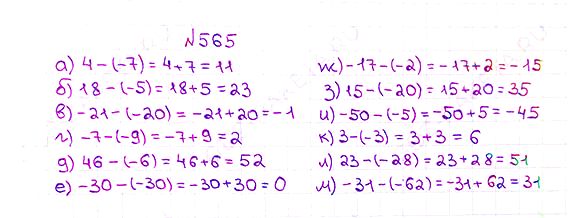 №565
а) 4-(-7)=4+7=11
б) 18-(-5)=18+5=23
в) -21-(-20)=-21+20=-1
г) -7-(-9)=-7+9=2
д) 46-(-6)=46+6=52
е) -30-(-30)=-30+30=0
ж) -17-(-2)=-17+2=-15
з) 15-(-20)=15+20=35
и) -50-(-5)=-50+5=-45
к) 3-(-3)=3+3=6
л) 23-(-28)=23+28=51
м) -31-(-62)=-31+62=31